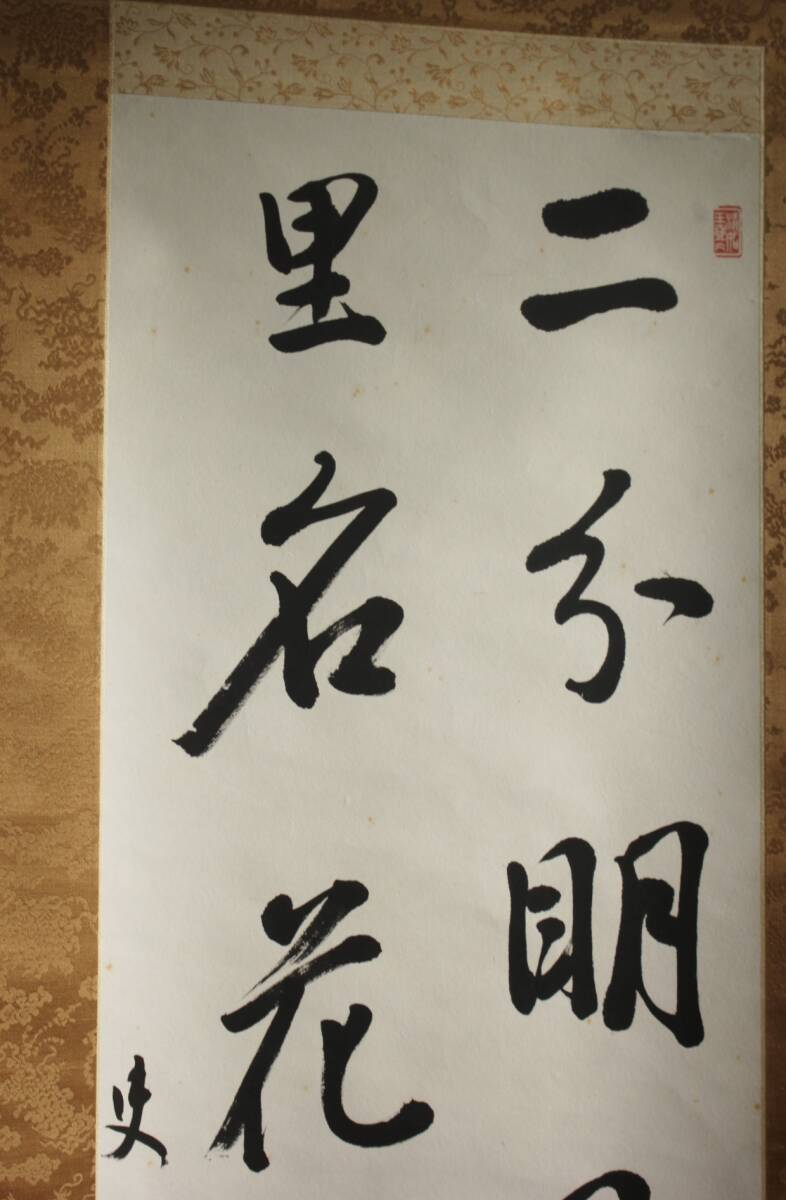 二分明
里名花
史